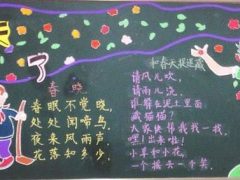 天
了
春晓
春眠不觉晓，
处处闻啼鸟，
夜来风雨声，
花落知多少。
和春天捉迷藏
请风儿吹，
请雨儿浇，
谁躲在泥土里面
藏猫猫？
大家快帮我找一找，
嘿！出来啦！
小草和小花，
一个摇一个笑。